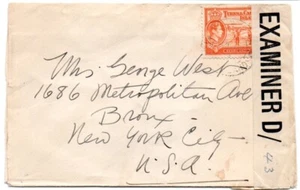 TURKS & CAICOS
ISLANDS
EXAMINER D/
43
Mrs. George West
1686 Metropolitan Ave
Bronx -
New York City -
U.S.A.